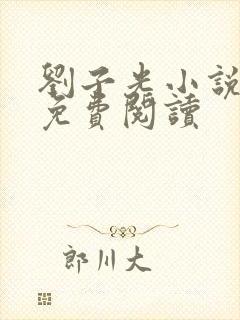 劉子光小說
免費閱讀
郎川大